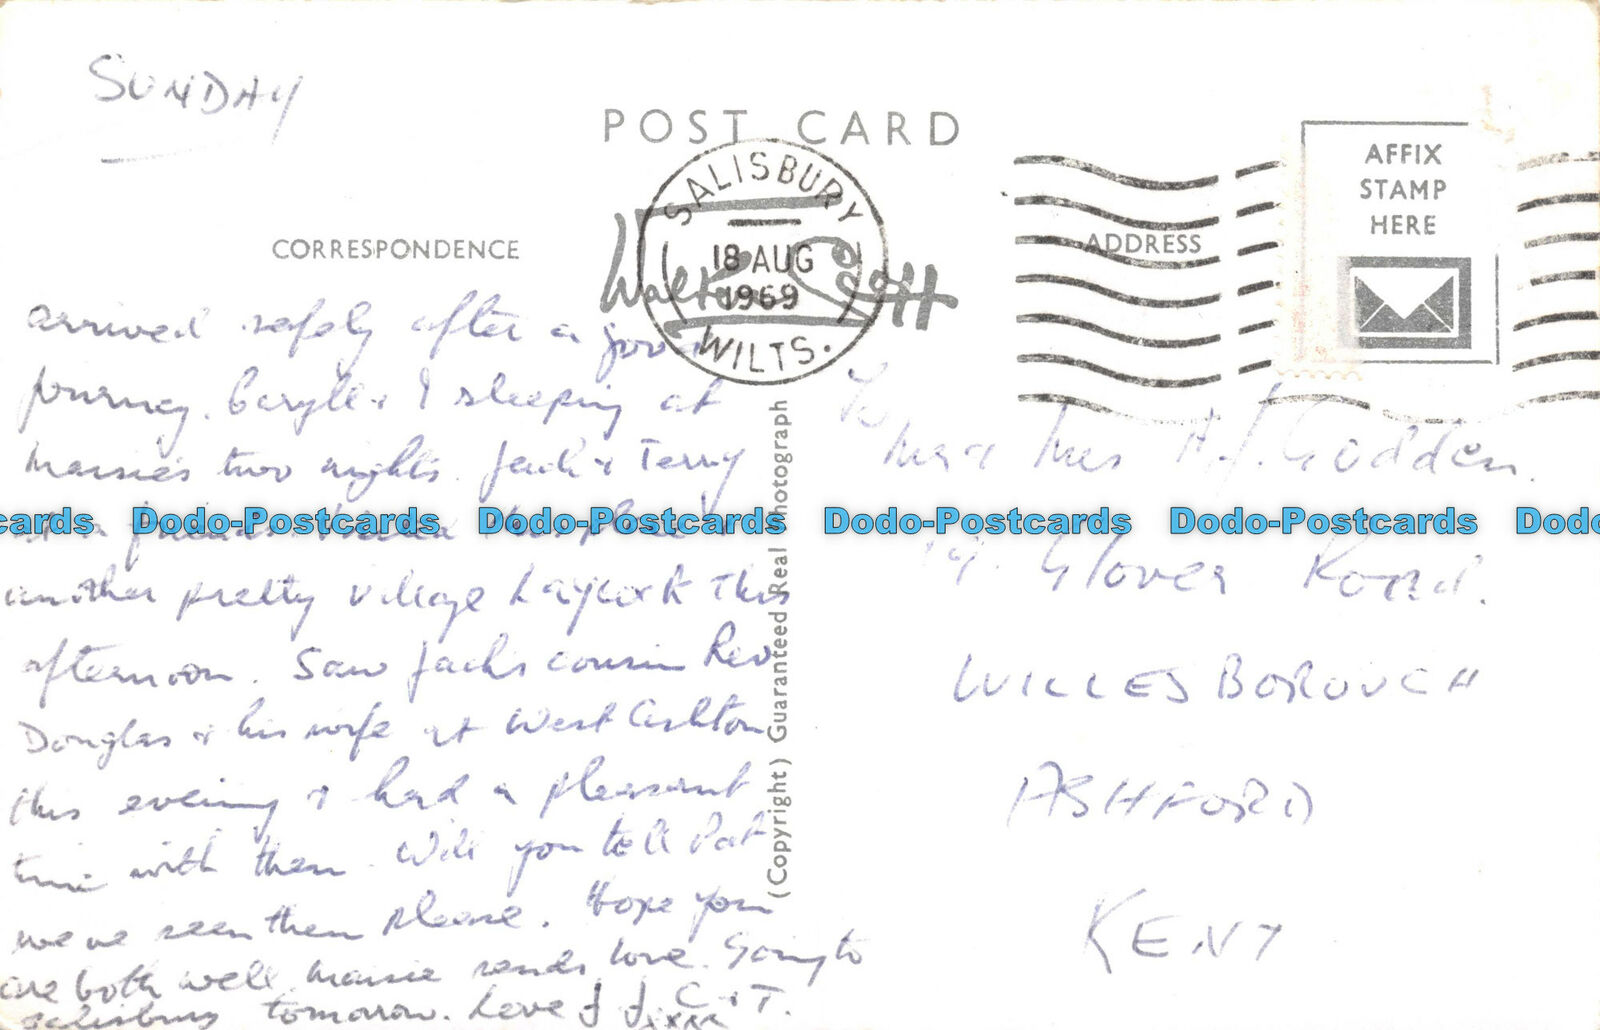 SUNDAY
POST CARD
SALISBURY
18 AUG
1969
WILTS.
Walter Scott
CORRESPONDENCE
ADDRESS
AFFIX
STAMP
HERE
arrived safely after a good
journey. Beryl & I sleeping at
Maisie's two nights. Jack & Terry
at a friends. Visited
another pretty village Laycock This
afternoon. Saw Jack's cousin Rev
Douglas & his wife at West Ashton
this evening & had a pleasant
time with them. Will you tell Pat
we've seen them please. Hope you
are both well Maisie sends love. Going to
Salisbury tomorrow. Love J J. C & T.
xxxx
To
Mr & Mrs A.J. Godden.
Glover Road.
WILLESBOROUGH
ASHFORD
KENT
(Copyright) Guaranteed Real Photograph
cards Dodo-Postcards Dodo-Postcards Dodo-Postcards Dodo-Postcards Dodo